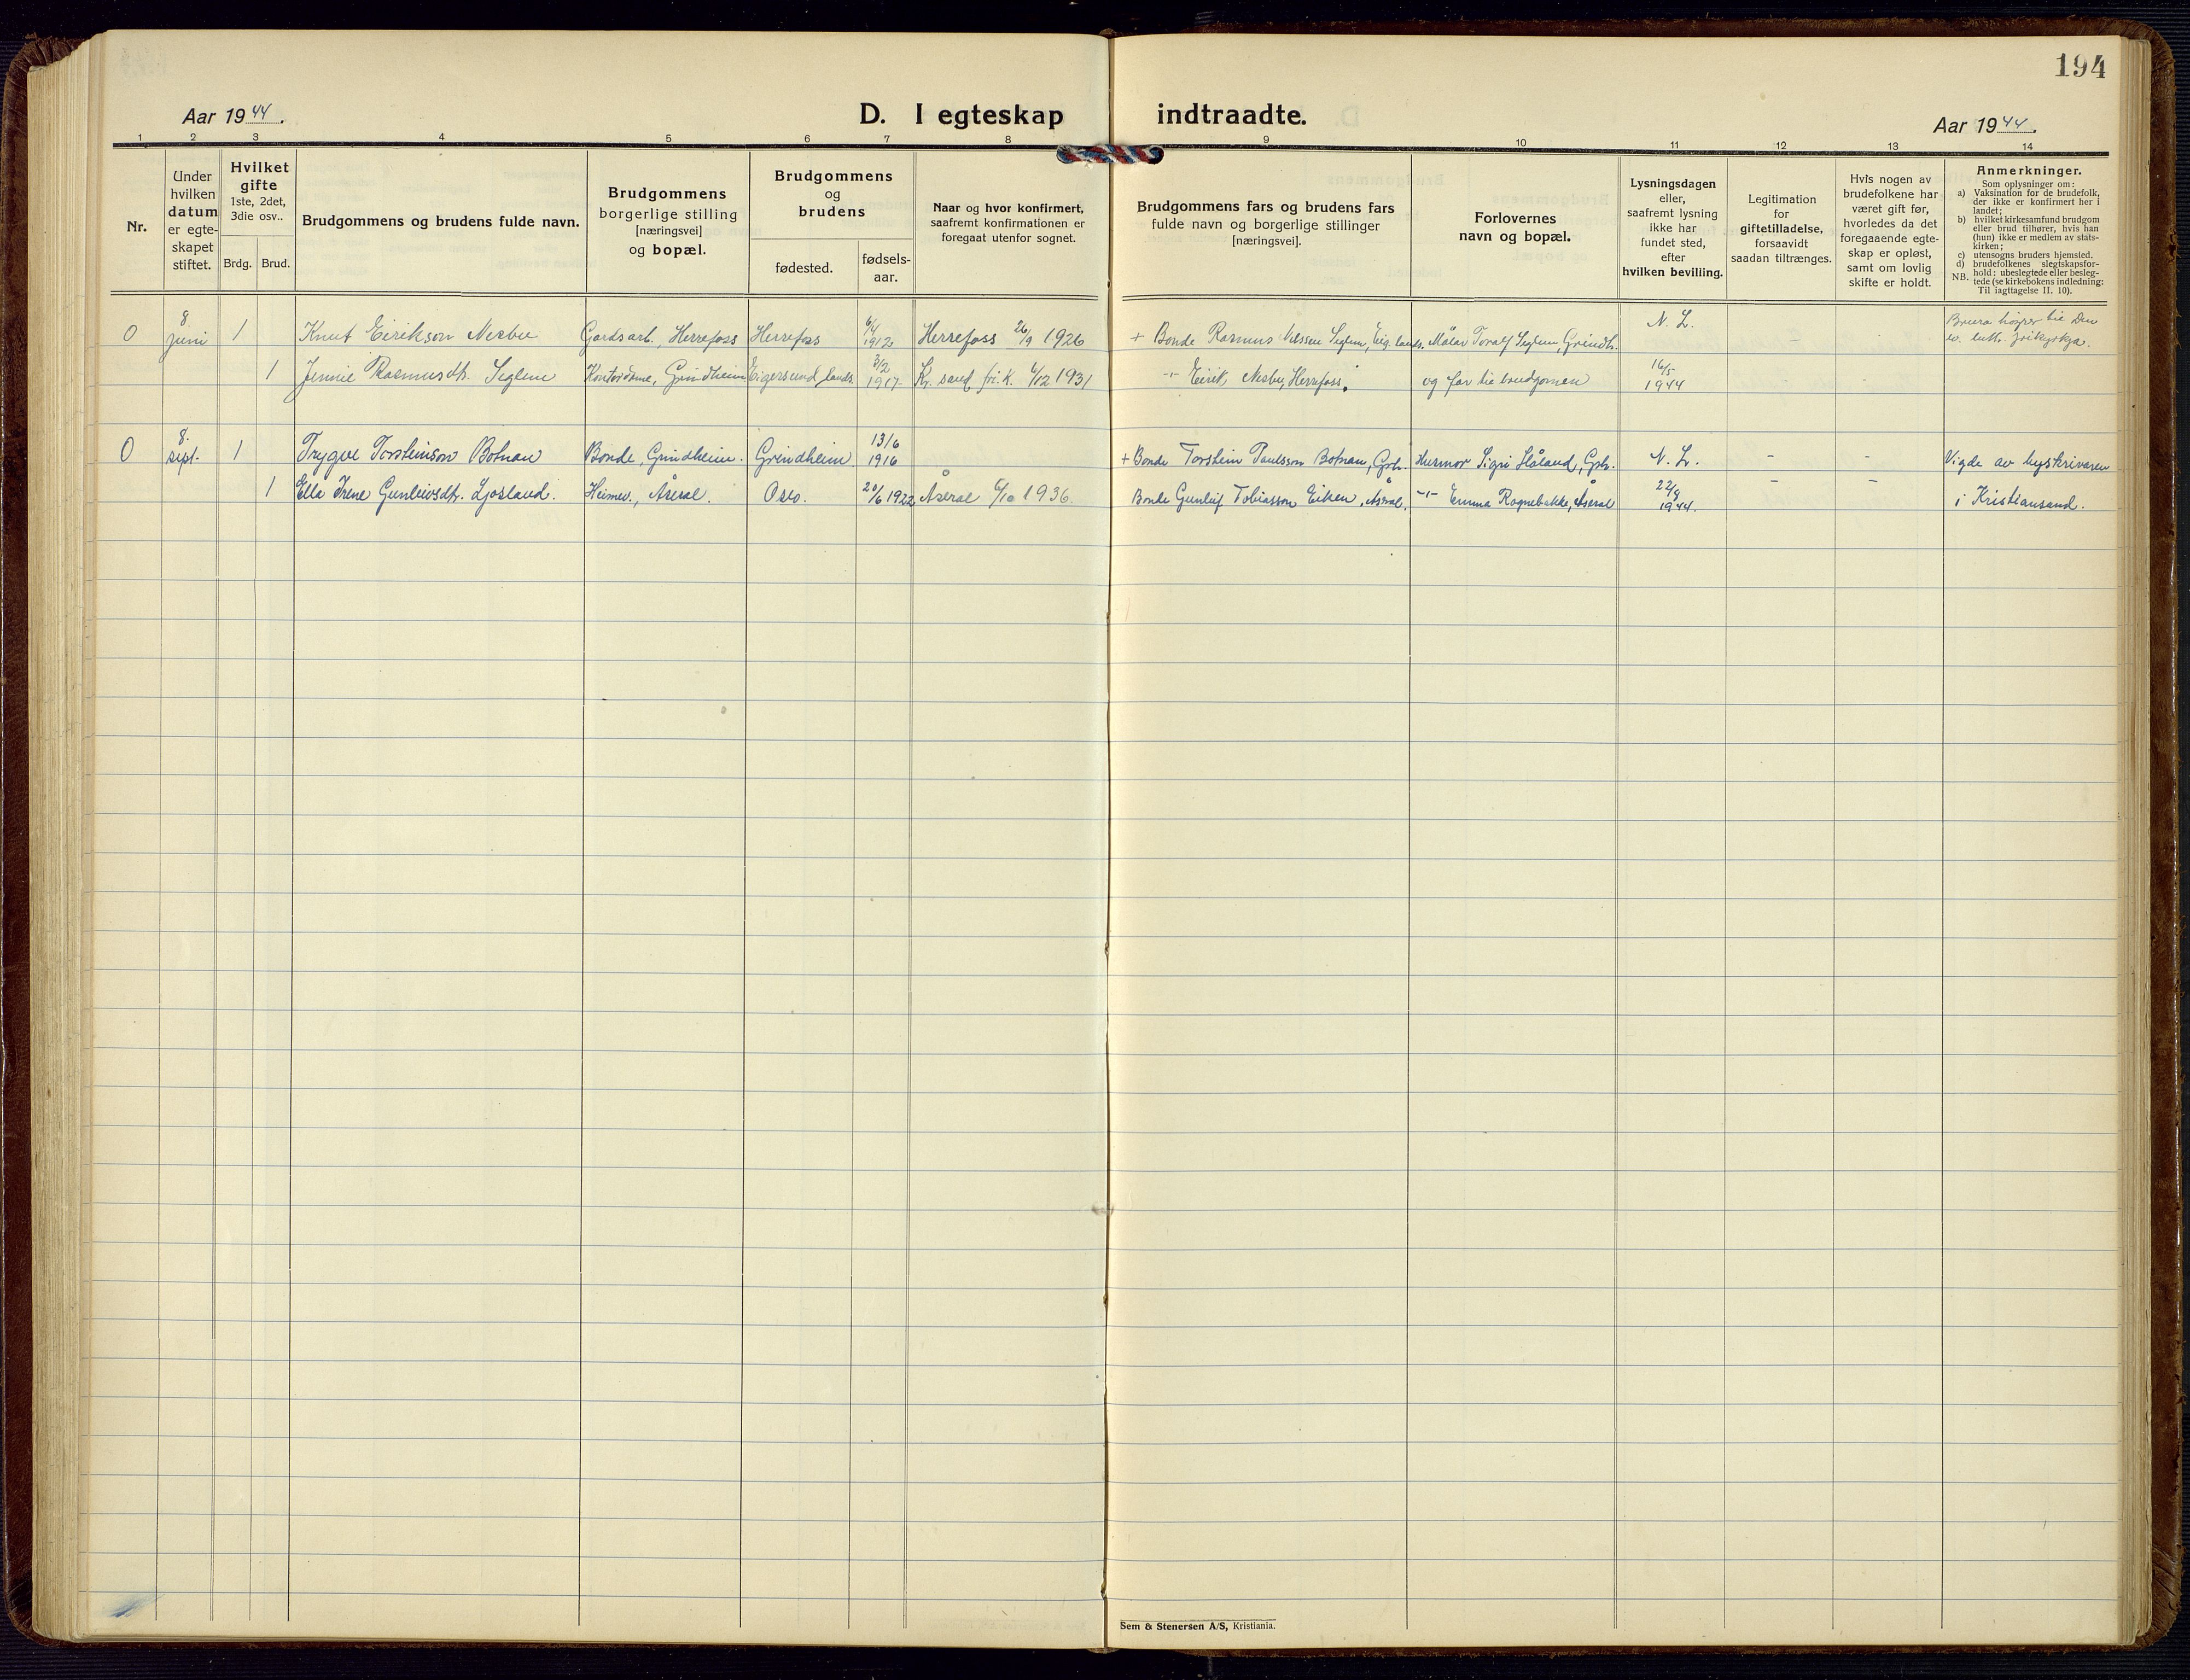 194
Aar 1944.
D. I egteskap indtraadte.
Aar 1944.
1 2 3 4 5 6 7 8 9 10 11 12 13 14
Nr.
Under
hvilken
datum
er egte-
skapet
stiftet.
Hvilket
gifte
1ste, 2det,
3die osv..
Brdg. Brud.
Brudgommens og brudens fulde navn.
Brudgommens
borgerlige stilling
[næringsvei]
og bopæl.
Brudgommens
og
brudens
fødested.
fødsels-
aar.
Naar og hvor konfirmert,
saafremt konfirmationen er
foregaat utenfor sognet.
Brudgommens fars og brudens fars
fulde navn og borgerlige stillinger
[næringsvei].
Forlovernes
navn og bopæl.
Lysningsdagen
eller,
saafremt lysning
ikke har
fundet sted,
efter
hvilken bevilling.
Legitimation
for
giftetilladelse,
forsaavidt
saadan tiltrænges.
Hvis nogen av
brudefolkene har
været gift før,
hvorledes da det
foregaaende egte-
skap er opløst,
samt om lovlig
skifte er holdt.
Anmerkninger.
Som oplysninger om:
a) Vaksination for de brudefolk,
der ikke er konfirmert her i
landet;
b) hvilket kirkesamfund brudgom
eller brud tilhører, hvis han
(hun) ikke er medlem av stats-
kirken;
c) utensogns bruders hjemsted.
d) brudefolkenes slegtskapsfor-
NB. hold: ubeslegtede eller besleg-
tede (se kirkebokens indledning:
Til iagttagelse II. 10).
0 8 juni 1 Knut Eirikson Nesbu Gardsarb. Herrefoss Herrefoss 6/4 1912 Herrefoss 26/9 1926 + Bonde Rasmus Nilssen Seglem, Eig. lands. Målar Toralf Seglem, Grindh. N. L. - - Brura høyrer til Den ev. luth. frikyrkja.
1 Jennie Rasmusdtr. Seglem Kontordame, Grindheim Eigersund lands. 3/2 1917 Kr. sand, fri. K. 6/12 1931 -"- Eirik Nesbu, Herrefoss. og far til brudgomen 16/5 1944
0 8. sept. 1 Trygve Torsteinson Botnan Bonde, Grindheim. Grindheim 13/6 1916 + Bonde Torstein Paulsson Botnan, Grh. Husmor Sigri Håland, Grh. N. L. - - Vigde av byskrivaren
1 Ella Irene Gunleivsdtr. Ljosland. Heimev., Åseral. Oslo. 20/6 1922 Åseral 6/10 1936. Bonde Gunleif Tobiasson Eiken, Åseral. -"- Emma Rognebakke, Åseral 22/8 1944. - - i Kristiansand.
Sem & Stenersen A/S, Kristiania.